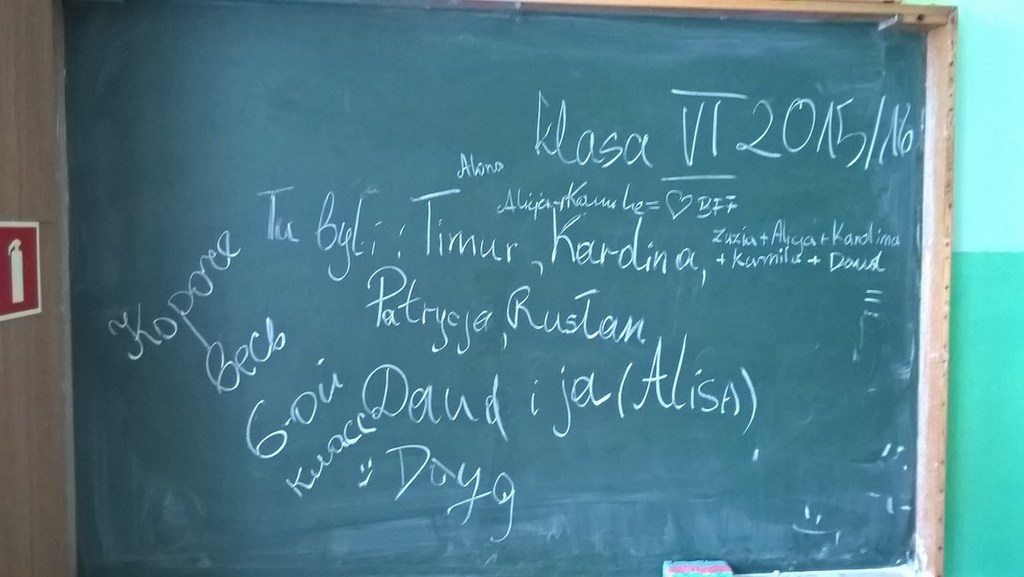 klasa VI 2015/16
Alona
Alicja + Kamila = ♡ BFF
Tu byli: Timur, Karolina,
Zuzia + Alicja + Karolina
+ Kamila + Daud
Patrycja, Rusłan
Daud i ja (Alisa)
Дауд
Короче
весь
6-ой
класс :)